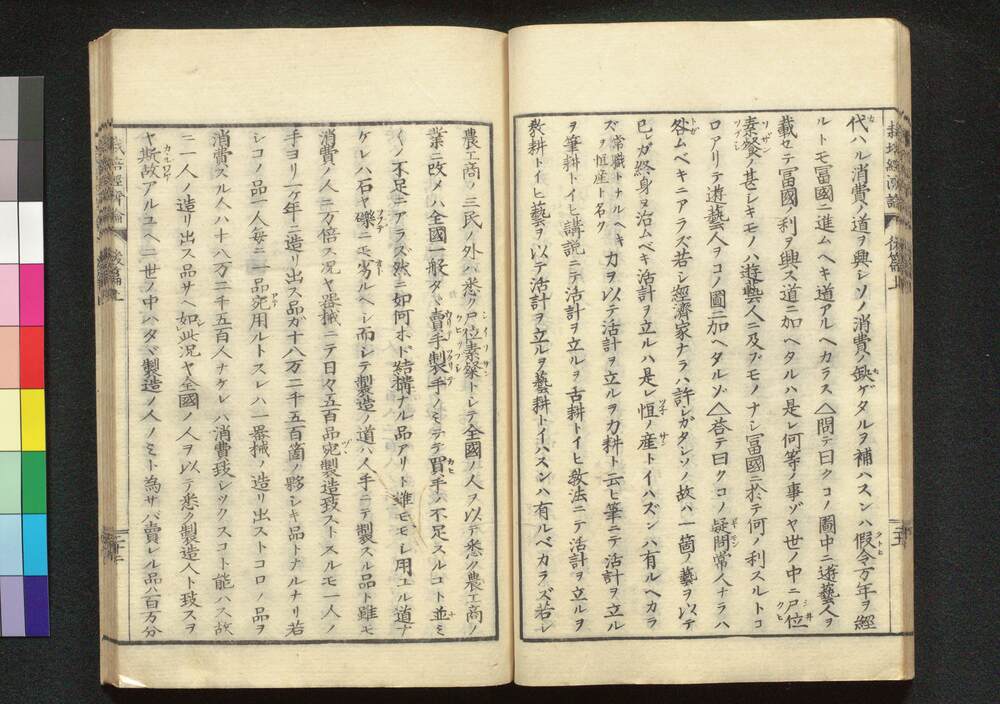 代ハル消費ノ道ヲ興シソノ消費ノ缺ゲタルヲ補ハスンハ假令万年ヲ經
ルトモ冨國ニ進ムヘキ道アルヘカラス△問テ曰クコノ圖中ニ遊藝人ヲ
載セテ冨國ノ利ヲ興ス道ニ加ヘタルハ是レ何等ノ事ゾヤ世ノ中ニ尸位
素餐ノ甚シキモノハ遊藝人ニ及ブモノナシ冨國ニ於テ何ノ利スルトコ
ロアリテ遊藝人ヲコノ圖ニ加ヘタルゾ△答テ曰クコノ疑問常人ナラハ
咎ムベキニアラズ若シ經濟家ナラハ許シガタシソノ故ハ一箇ノ藝ヲ以テ
已レガ終身ヲ治ムベキ活計ヲ立ルハ是レ恒ノ産トイハズンハ有ルヘカラ
ズ常職トナルヘキヲ恒産ト名ク力ヲ以テ活計ヲ立ルヲ力耕ト云ヒ筆ニテ活計ヲ立ル
ヲ筆耕トイヒ講説ニテ活計ヲ立ルヲ舌耕トイヒ教法ニテ活計ヲ立ルヲ
教耕トイヒ藝ヲ以テ活計ヲ立ルヲ藝耕トイハスンハ有ルベカラズ若レ
農工商ノ三民ノ外ハ悉ク尸位素餐トシテ全國ノ人ヲ以テ悉ク農工商ノ
業ニ改メハ全國一般タヾ賣手製手ノミニテ買手ノ不足スルコト並ミ
イノ不足ニアラズ然ニ如何ホド結構ナル品アリト雖モモシ用エル道ナ
ケレハ石ヤ礫ニモ劣ルヘシ而シテ製造ノ道ハ人手ニテ製スル品ト雖モ
消費ノ人ニ万倍ス况ヤ器械ニテ日々五百品宛製造致ストスルモ一人ノ
手ヨリ一ヶ年ニ造リ出ス品ガ十八万二千五百箇ノ夥シキ品トナルナリ若
シコノ品一人毎ニ一品宛用ルトスレハ一器械ノ造リ出ストコロノ品ヲ
消費スル人ハ十八万二千五百人ナケレハ消費致シツクスコト能ハス故
ニ一人ノ造リ出ス品サヘ如此况ヤ全國ノ人ヲ以テ悉ク製造人ト致スヲ
ヤ斯故アルユヘニ世ノ中ハタヾ製造ノ人ノミト為サバ賣レル品ハ百万分